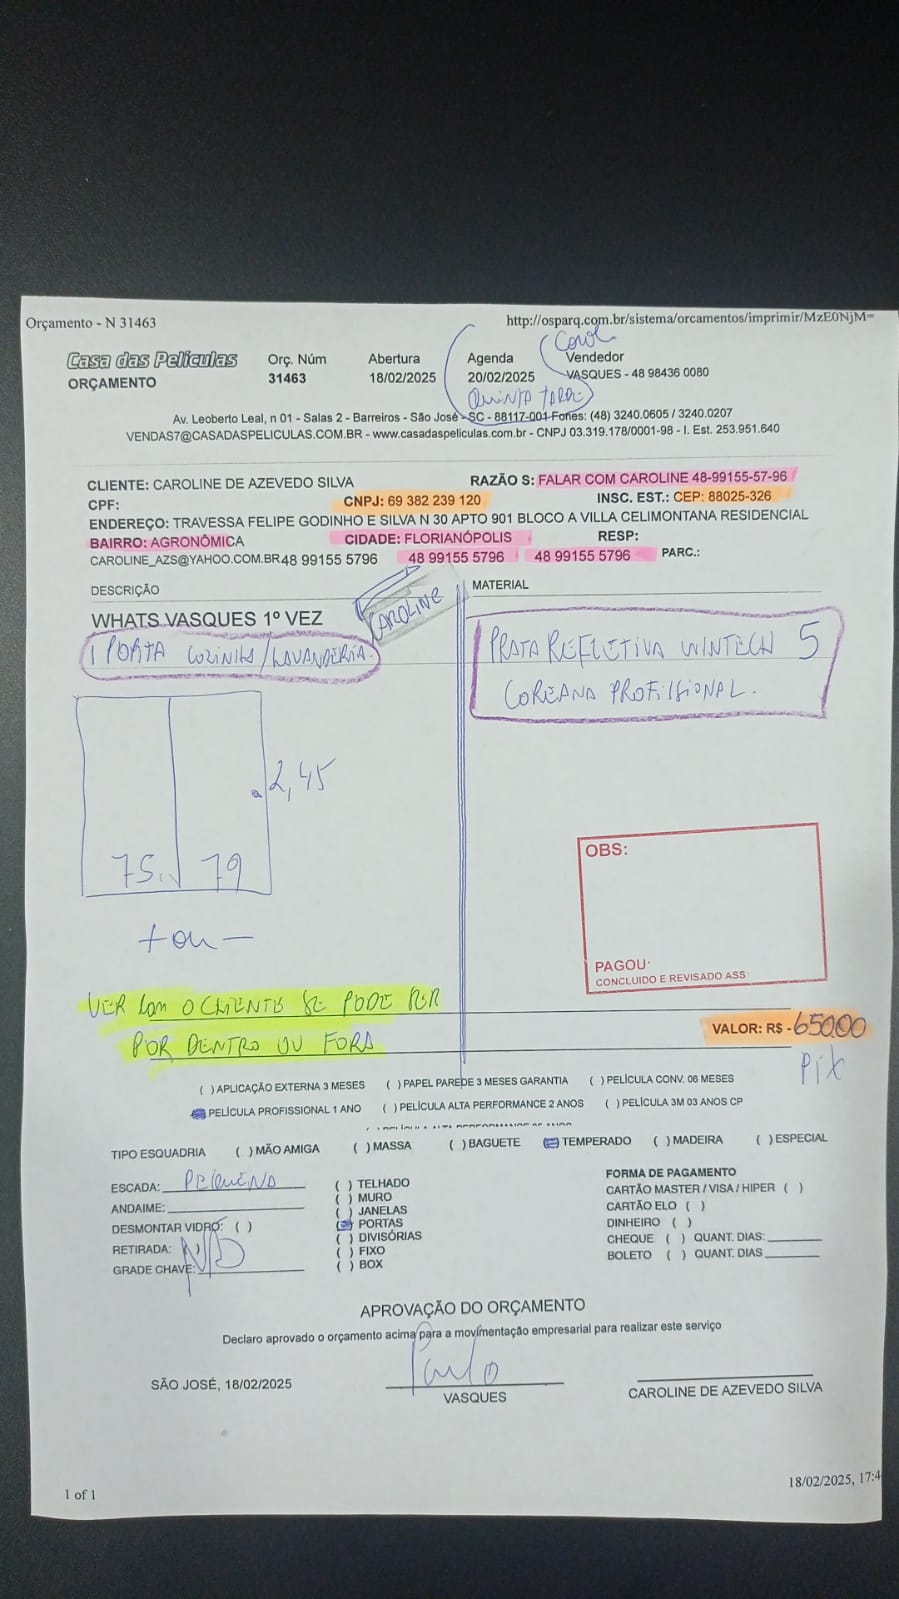 Orçamento - N 31463
http://osparq.com.br/sistema/orcamentos/imprimir/MzE0NjM=
Casa das Películas
ORÇAMENTO
Orç. Núm
31463
Abertura
18/02/2025
Agenda
20/02/2025
QUINTA TARDE
Vendedor
VASQUES - 48 98436 0080
Av. Leoberto Leal, n 01 - Salas 2 - Barreiros - São José - SC - 88117-001 Fones: (48) 3240.0605 / 3240.0207
VENDAS7@CASADASPELICULAS.COM.BR - www.casadaspeliculas.com.br - CNPJ 03.319.178/0001-98 - I. Est. 253.951.640
CLIENTE: CAROLINE DE AZEVEDO SILVA
RAZÃO S: FALAR COM CAROLINE 48-99155-57-96
CPF:
CNPJ: 69 382 239 120
INSC. EST.: CEP: 88025-326
ENDEREÇO: TRAVESSA FELIPE GODINHO E SILVA N 30 APTO 901 BLOCO A VILLA CELIMONTANA RESIDENCIAL
BAIRRO: AGRONÔMICA
CIDADE: FLORIANÓPOLIS
RESP:
CAROLINE_AZS@YAHOO.COM.BR 48 99155 5796 48 99155 5796 48 99155 5796 PARC.:
DESCRIÇÃO
MATERIAL
WHATS VASQUES 1º VEZ
CAROLINE
1 PORTA COZINHA/LAVANDERIA.
PRATA REFLETIVA WINTECH 5
COREANA PROFISSIONAL.
2,45
75. 79
+ ou -
OBS:
PAGOU:
CONCLUIDO E REVISADO ASS
VER COM O CLIENTE SE PODE POR
POR DENTRO OU FORA
VALOR: R$ - 650,00
PIX
( ) APLICAÇÃO EXTERNA 3 MESES ( ) PAPEL PAREDE 3 MESES GARANTIA ( ) PELÍCULA CONV. 06 MESES
PELÍCULA PROFISSIONAL 1 ANO ( ) PELÍCULA ALTA PERFORMANCE 2 ANOS ( ) PELÍCULA 3M 03 ANOS CP
TIPO ESQUADRIA ( ) MÃO AMIGA ( ) MASSA ( ) BAGUETE TEMPERADO ( ) MADEIRA ( ) ESPECIAL
ESCADA: PEQUENA
ANDAIME:
DESMONTAR VIDRO: ( )
RETIRADA: ( )
GRADE CHAVE:
( ) TELHADO
( ) MURO
( ) JANELAS
PORTAS
( ) DIVISÓRIAS
( ) FIXO
( ) BOX
FORMA DE PAGAMENTO
CARTÃO MASTER / VISA / HIPER ( )
CARTÃO ELO ( )
DINHEIRO ( )
CHEQUE ( ) QUANT. DIAS:
BOLETO ( ) QUANT. DIAS
APROVAÇÃO DO ORÇAMENTO
Declaro aprovado o orçamento acima para a movimentação empresarial para realizar este serviço
SÃO JOSÉ, 18/02/2025
VASQUES
CAROLINE DE AZEVEDO SILVA
1 of 1
18/02/2025, 17:4